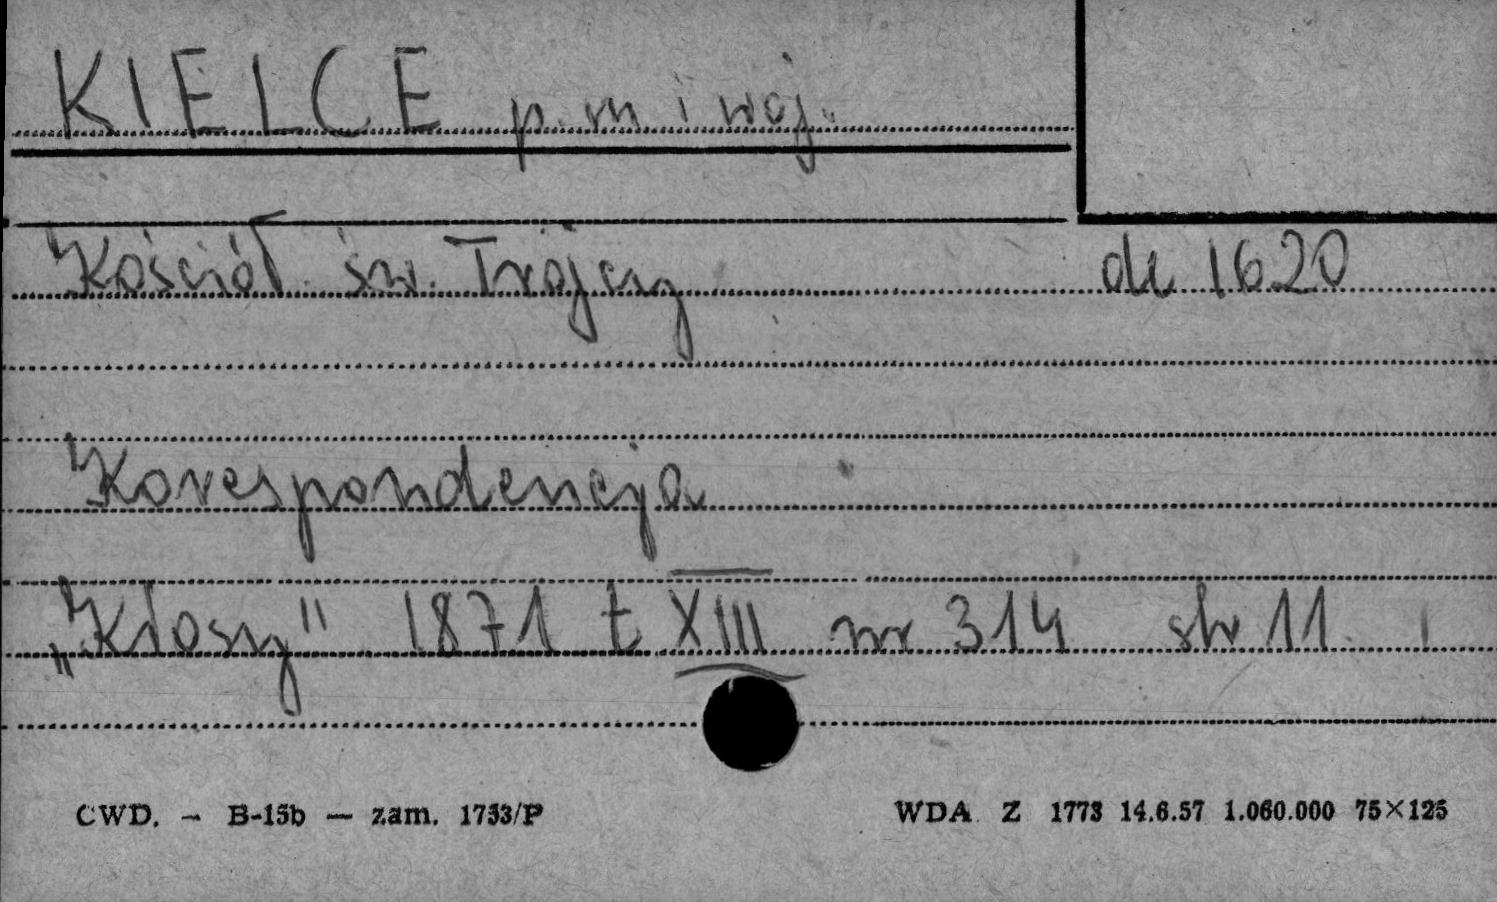 KIELCE p. m i woj.
Kościół św. Trójcy
1620
Korespondencja
„Kłosy" 1871 t XIII nr 314 str 11.
CWD. — B-15b — zam. 1753/P
WDA Z 1773 14.6.57 1.060.000 75×125